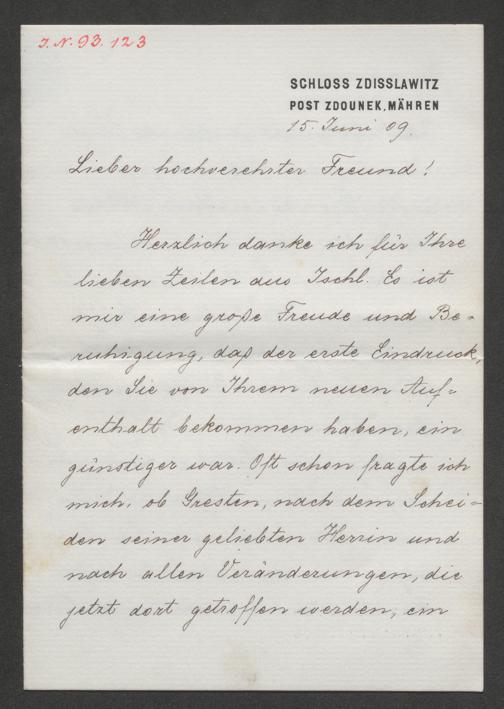 J. N. 93.123
SCHLOSS ZDISSLAWITZ
POST ZDOUNEK, MÄHREN
15. Juni 09.
Lieber hochverehrter Freund!
Herzlich danke ich für Ihre
lieben Zeilen aus Ischl. Es ist
mir eine große Freude und Be-
ruhigung, daß der erste Eindruck,
den Sie von Ihrem neuen Auf-
enthalt bekommen haben, ein
günstiger war. Oft schon fragte ich
mich, ob Gresten, nach dem Schei-
den seiner geliebten Herrin und
nach allen Veränderungen, die
jetzt dort getroffen werden, ein